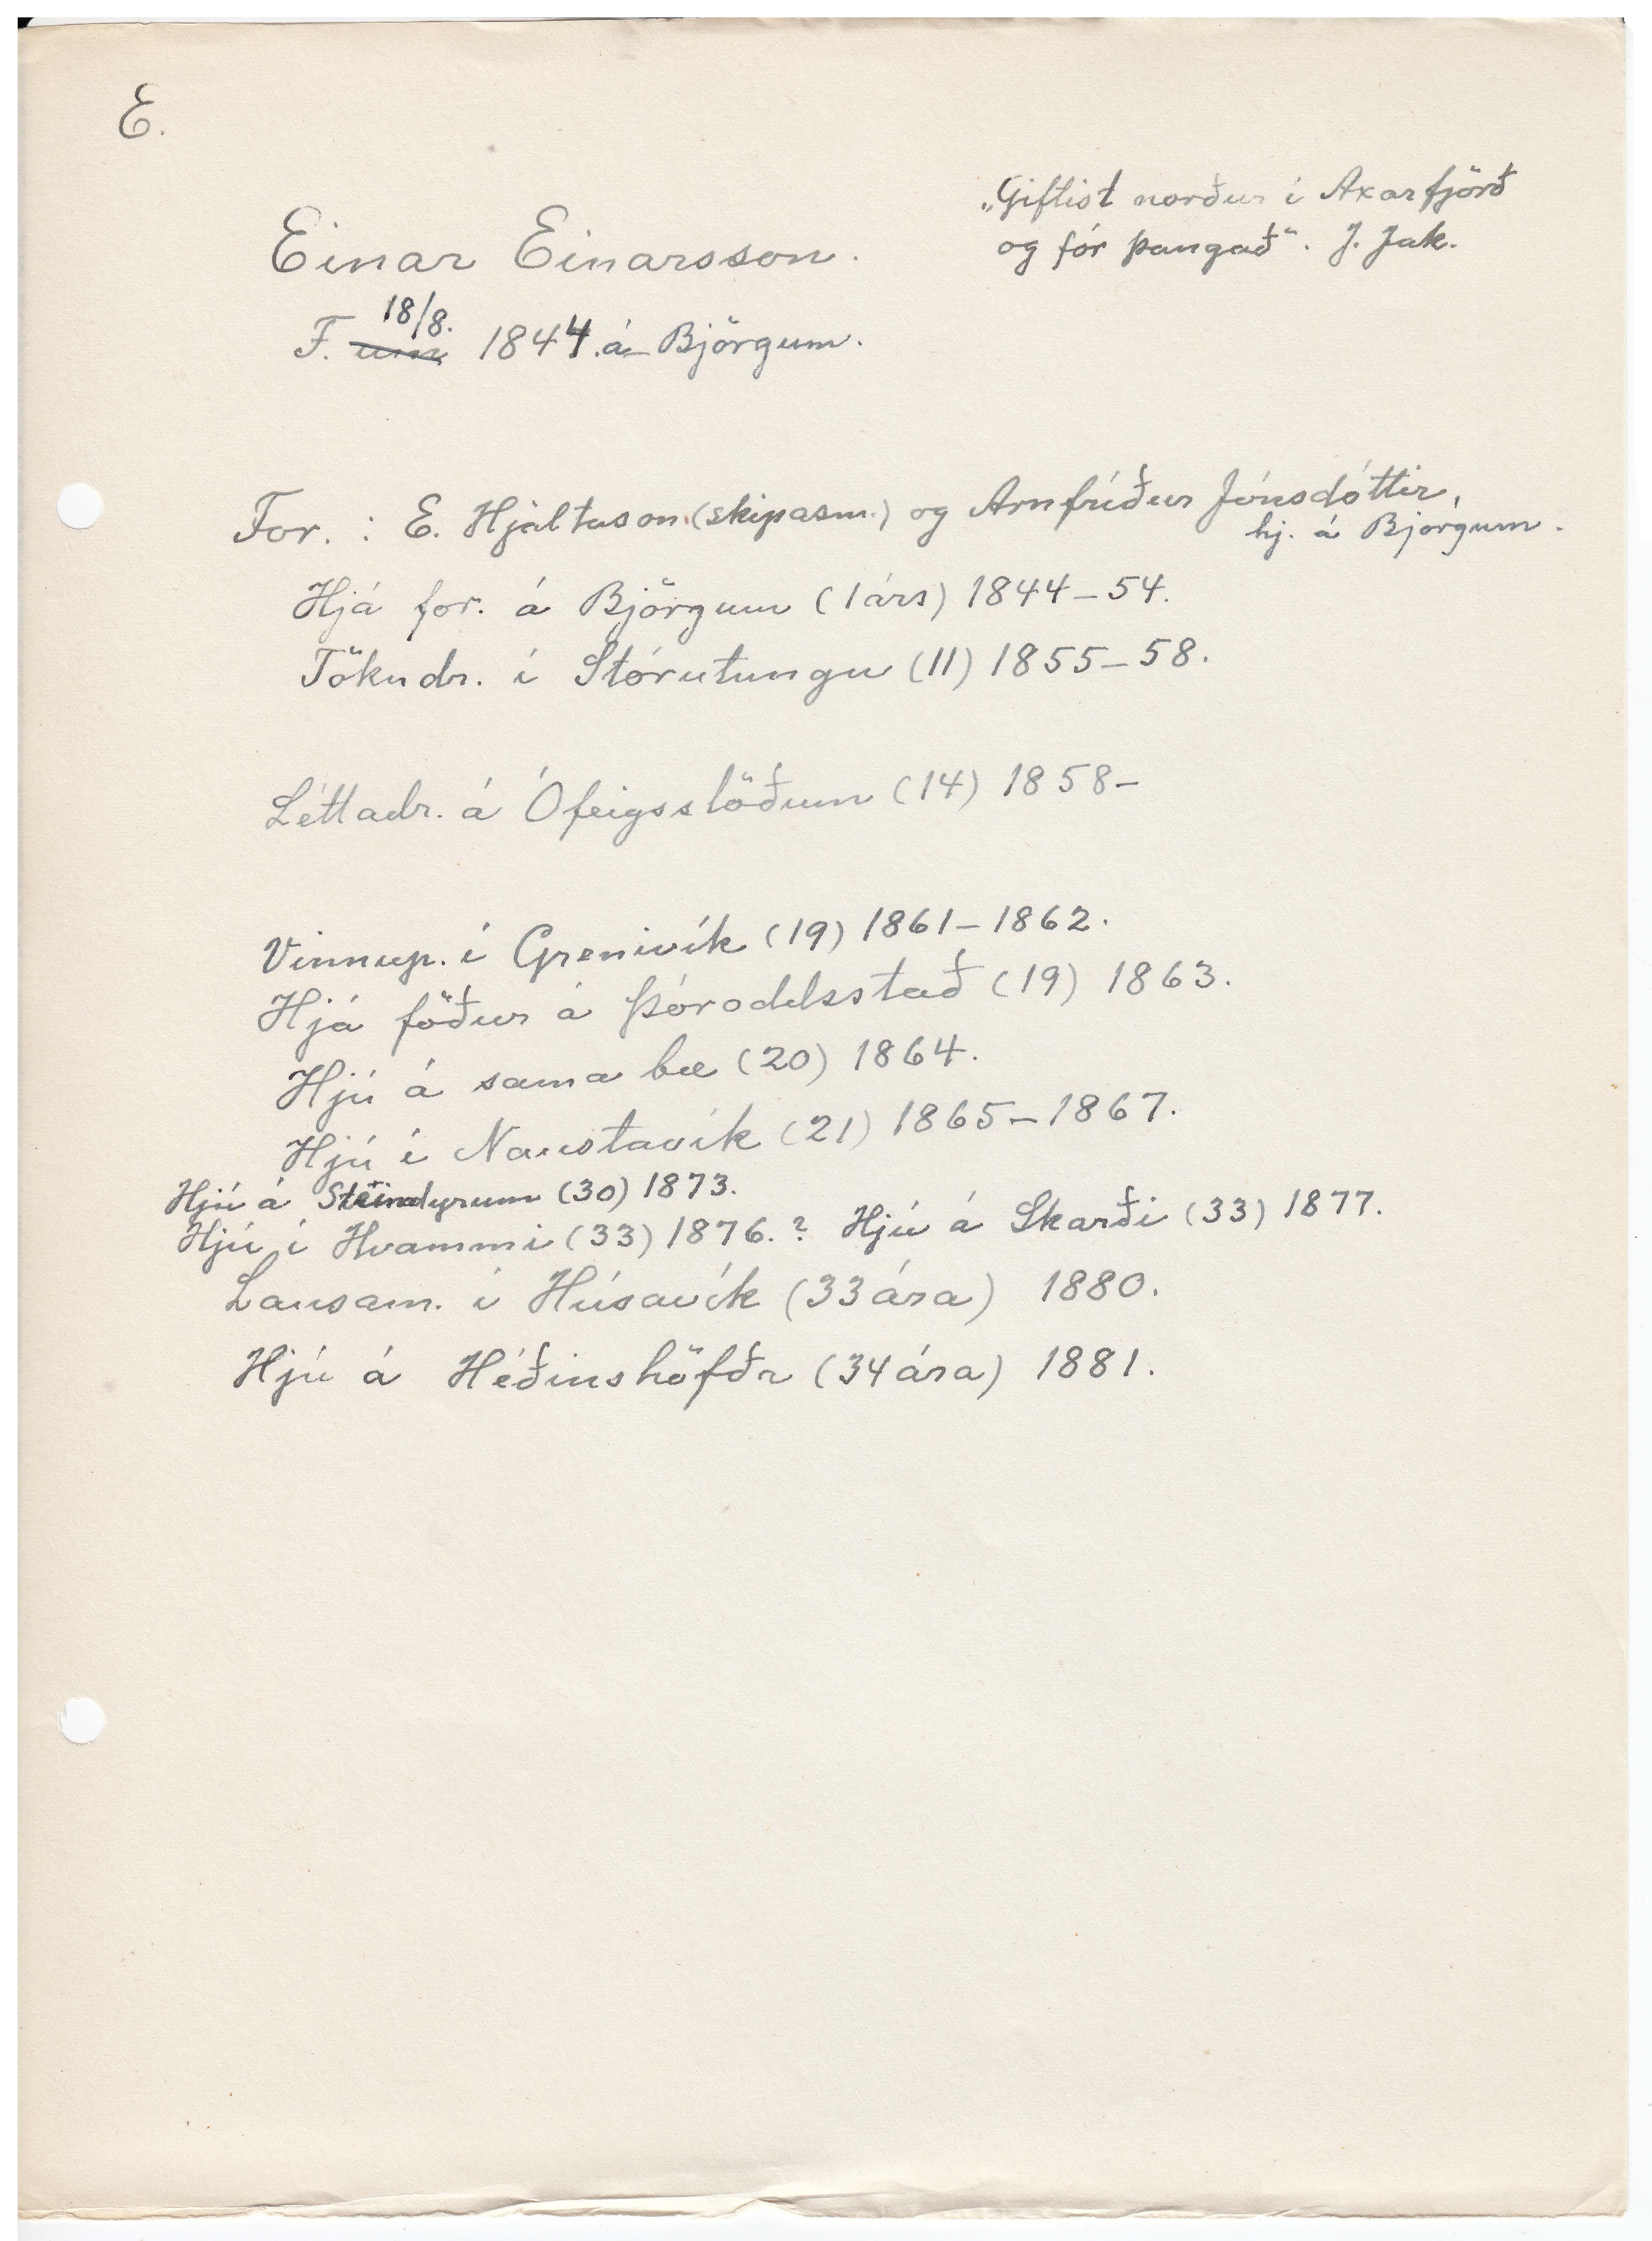 E.
„Giftist norður í Axarfjörð
og fór þangað“. J. Jak.
Einar Einarsson.
18/8.
F. um 1844. á Björgum.
For. : E. Hjaltason (skipasm.) og Arnfríður Jónsdóttir,
hj. á Björgum.
Hjá for. á Björgum (1 árs) 1844–54.
Tökudr. í Stórutungu (11) 1855–58.
Léttadr. á Ófeigsstöðum (14) 1858–
Vinnup. í Grenivík (19) 1861–1862.
Hjá föður á Þóroddsstað (19) 1863.
Hjú á sama bæ (20) 1864.
Hjú í Naustavík (21) 1865–1867.
Hjú á Steindyrum (30) 1873.
Hjú í Hvammi (33) 1876.? Hjú á Skarði (33) 1877.
Lausam. í Húsavík (33 ára) 1880.
Hjú á Héðinshöfða (34 ára) 1881.